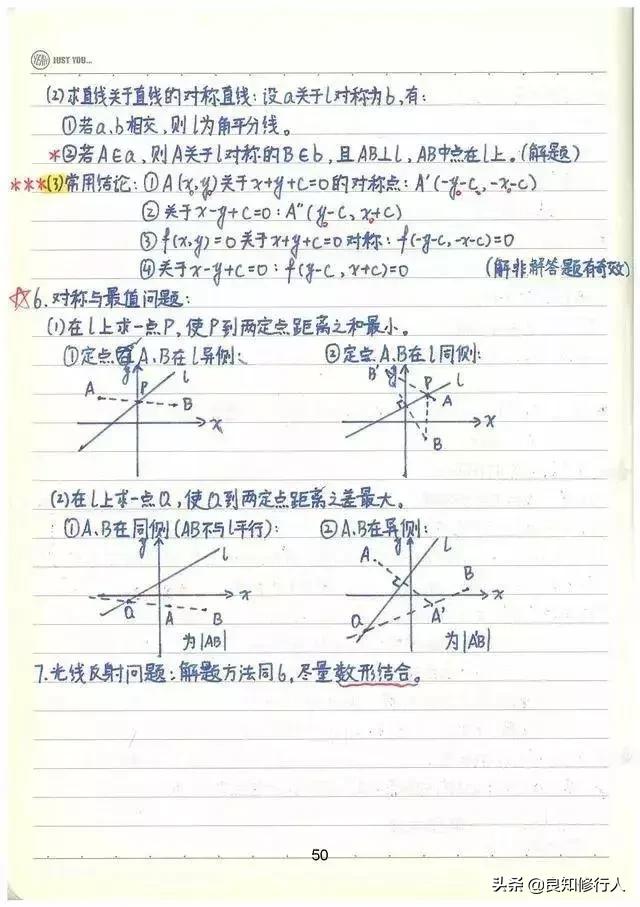 JUST YOU...
(2)求直线关于直线的对称直线:设a关于l对称为b,有:
①若a、b相交,则l为角平分线。
*②若A∈a,则A关于l对称的B∈b,且AB⊥l,AB中点在l上。(解题)
***(3)常用结论:①A(x,y)关于x+y+C=0的对称点:A'(-y-C,-x-C)
②关于x-y+C=0:A"(y-C,x+C)
③f(x,y)=0关于x+y+C=0对称:f(-y-C,-x-C)=0
④关于x-y+C=0:f(y-C,x+C)=0 (解非解答题有奇效)
☆6.对称与最值问题:
(1)在l上求一点P,使P到两定点距离之和最小。
①定点A、B在l异侧: ②定点A、B在l同侧:
y l A P B x
B' y P l A x B
(2)在l上求一点Q,使Q到两定点距离之差最大。
①A、B在同侧(AB不与l平行): ②A、B在异侧:
y l x Q A B
A y l B x A' Q
为|AB| 为|A'B|
7.光线反射问题:解题方法同6,尽量数形结合。
50
头条@良知修行人